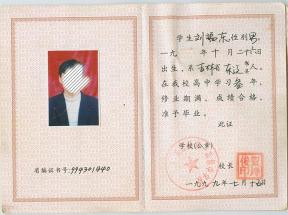 学生刘 东性别男，
一九 年十月二十六日
出生，系吉林省 人，
在我校高中学习叁年，
修业期满，成绩合格
准予毕业。
此证
学校(公章)
校长
省编证书号:994301440
一九九九年七月十 日